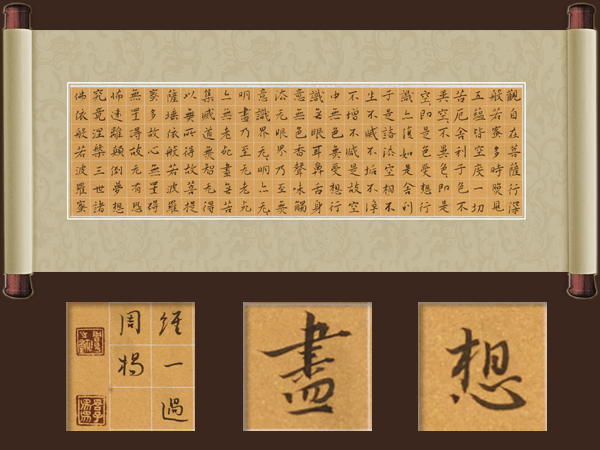 觀自在菩薩行深
般若蜜多時照見
五蘊皆空度一切
苦厄舍利子色不
異空不異色即是
空即是色受想行
識亦復如是舍利
于是諸法空相不
生不滅不垢不淨
不增不減是故空
中無色無受想行
識無眼耳鼻舌身
意無色香聲味觸
法无眼界乃至無
意識界无明亦无
明盡乃至无老死
亦無老死盡無苦
集滅道無智无得
以無所得故菩提
薩埵依般若波羅
蜜多故心無罣礙
無罣礙故无有恐
怖遠離顛倒夢想
究竟涅槃三世諸
佛依般若波羅蜜
經一過
周楊
盡
想